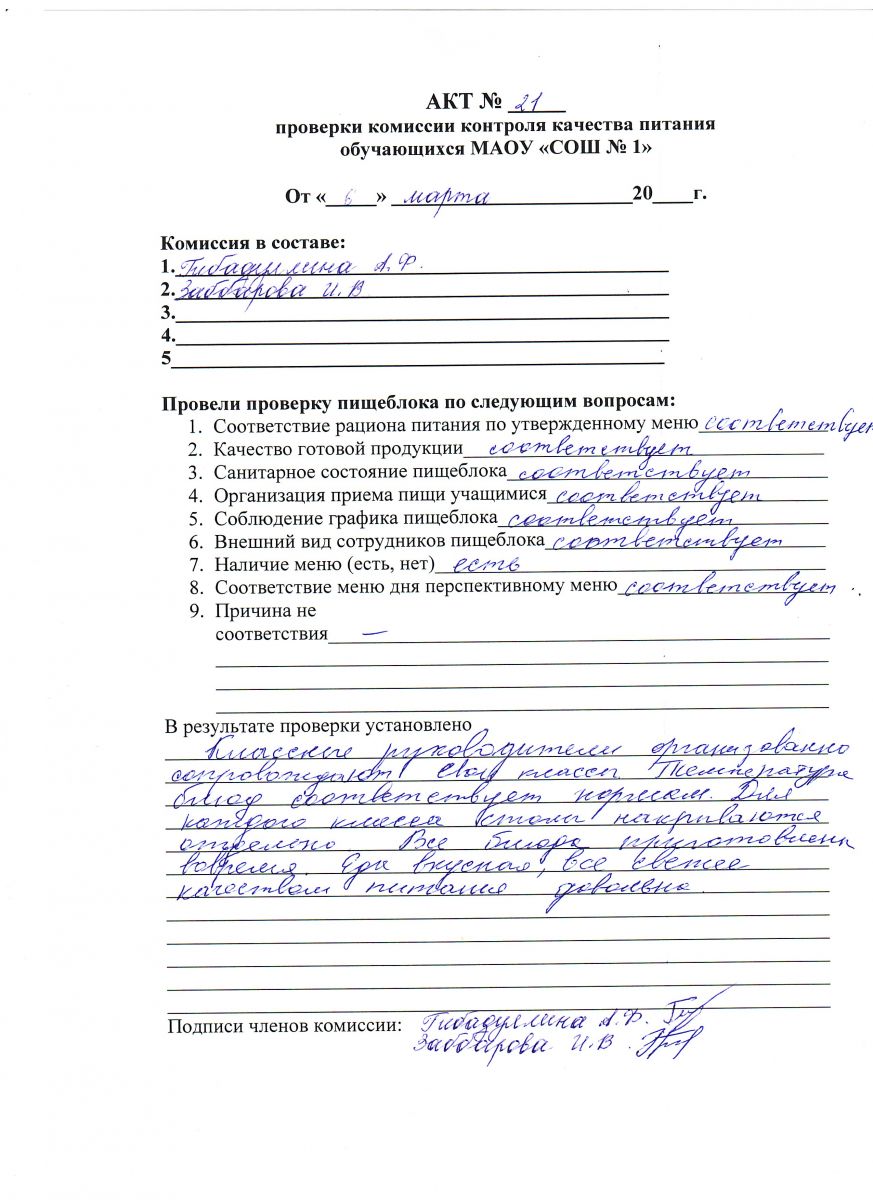 АКТ № 21
проверки комиссии контроля качества питания
обучающихся МАОУ «СОШ № 1»
От « 6 » марта 20 г.
Комиссия в составе:
1. Гибадуллина А.Ф.
2. Заббарова И.В
3.
4.
5
Провели проверку пищеблока по следующим вопросам:
1. Соответствие рациона питания по утвержденному меню соответствует
2. Качество готовой продукции соответствует
3. Санитарное состояние пищеблока соответствует
4. Организация приема пищи учащимися соответствует
5. Соблюдение графика пищеблока соответствует
6. Внешний вид сотрудников пищеблока соответствует
7. Наличие меню (есть, нет) есть
8. Соответствие меню дня перспективному меню соответствует.
9. Причина не
соответствия —
В результате проверки установлено
Классные руководители организованно
сопровождают свои классы. Температура
блюд соответствует нормам. Для
каждого класса столы накриваются
отделено. Все блюда приготовлены
вовремя. Еда вкусная, все свежее
качеством питания довольно.
Подписи членов комиссии: Гибадуллина А.Ф.
Заббарова И.В.